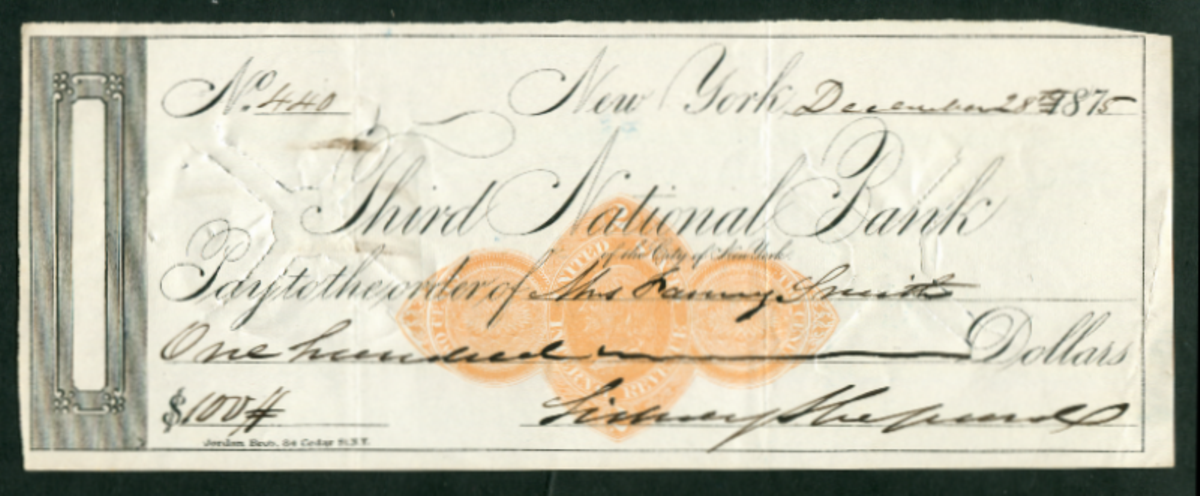 No. 440 New York, December 28th 1875
Third National Bank
of the City of New York
Pay to the order of Mrs Fanny Smith
One hundred Dollars
$100 #
Sidney Shepard
Jordan Bros. 84 Cedar St. N.Y.
UNITED STATES INTERNAL REVENUE